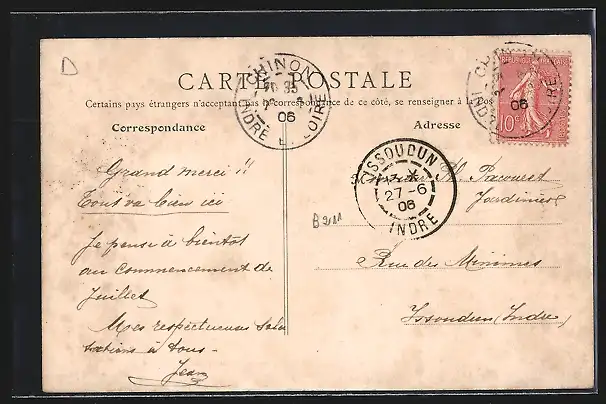 D
CARTE POSTALE
Certains pays étrangers n'acceptant pas la correspondance de ce côté, se renseigner à la Pos
Correspondance
Adresse
CHINON
06
INDRE ET LOIRE
06
RÉPUBLIQUE FRANÇAISE
10c
ISSOUDUN
27-6
06
INDRE
B 211
Grand merci !!
Tout va bien ici
Je pense à bientôt
au commencement de
Juillet
Mes respectueuses salu
tations à tous -
Jean
Monsieur Pacouret
Jardinier
Rue des Minimes
Issoudun (Indre)